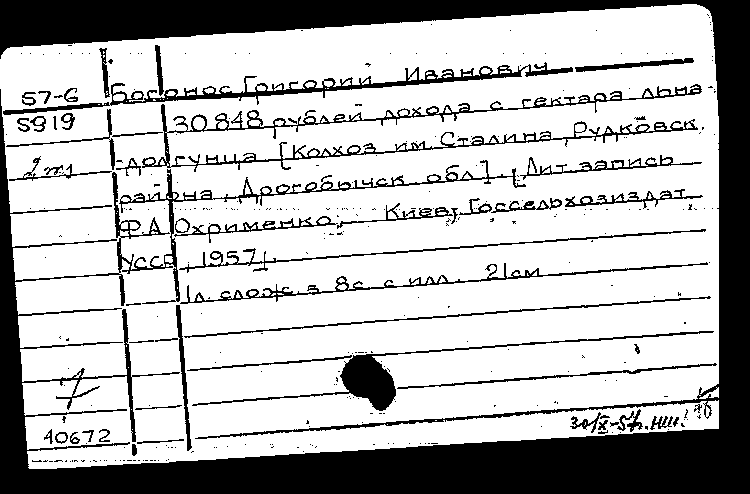 57-6 Богонос, Григорий Иванович
5919 30848 рублей дохода с гектара льна-
2 т1 -долгунца [Колхоз им. Сталина, Рудковск.
района, Дрогобычск обл]. [Лит. запись
Ф.А Охрименко, Киев, Госсельхозиздат
УССР, 1957].
1л. слож в 8с. с илл. 21см
40672
30/X-57г.